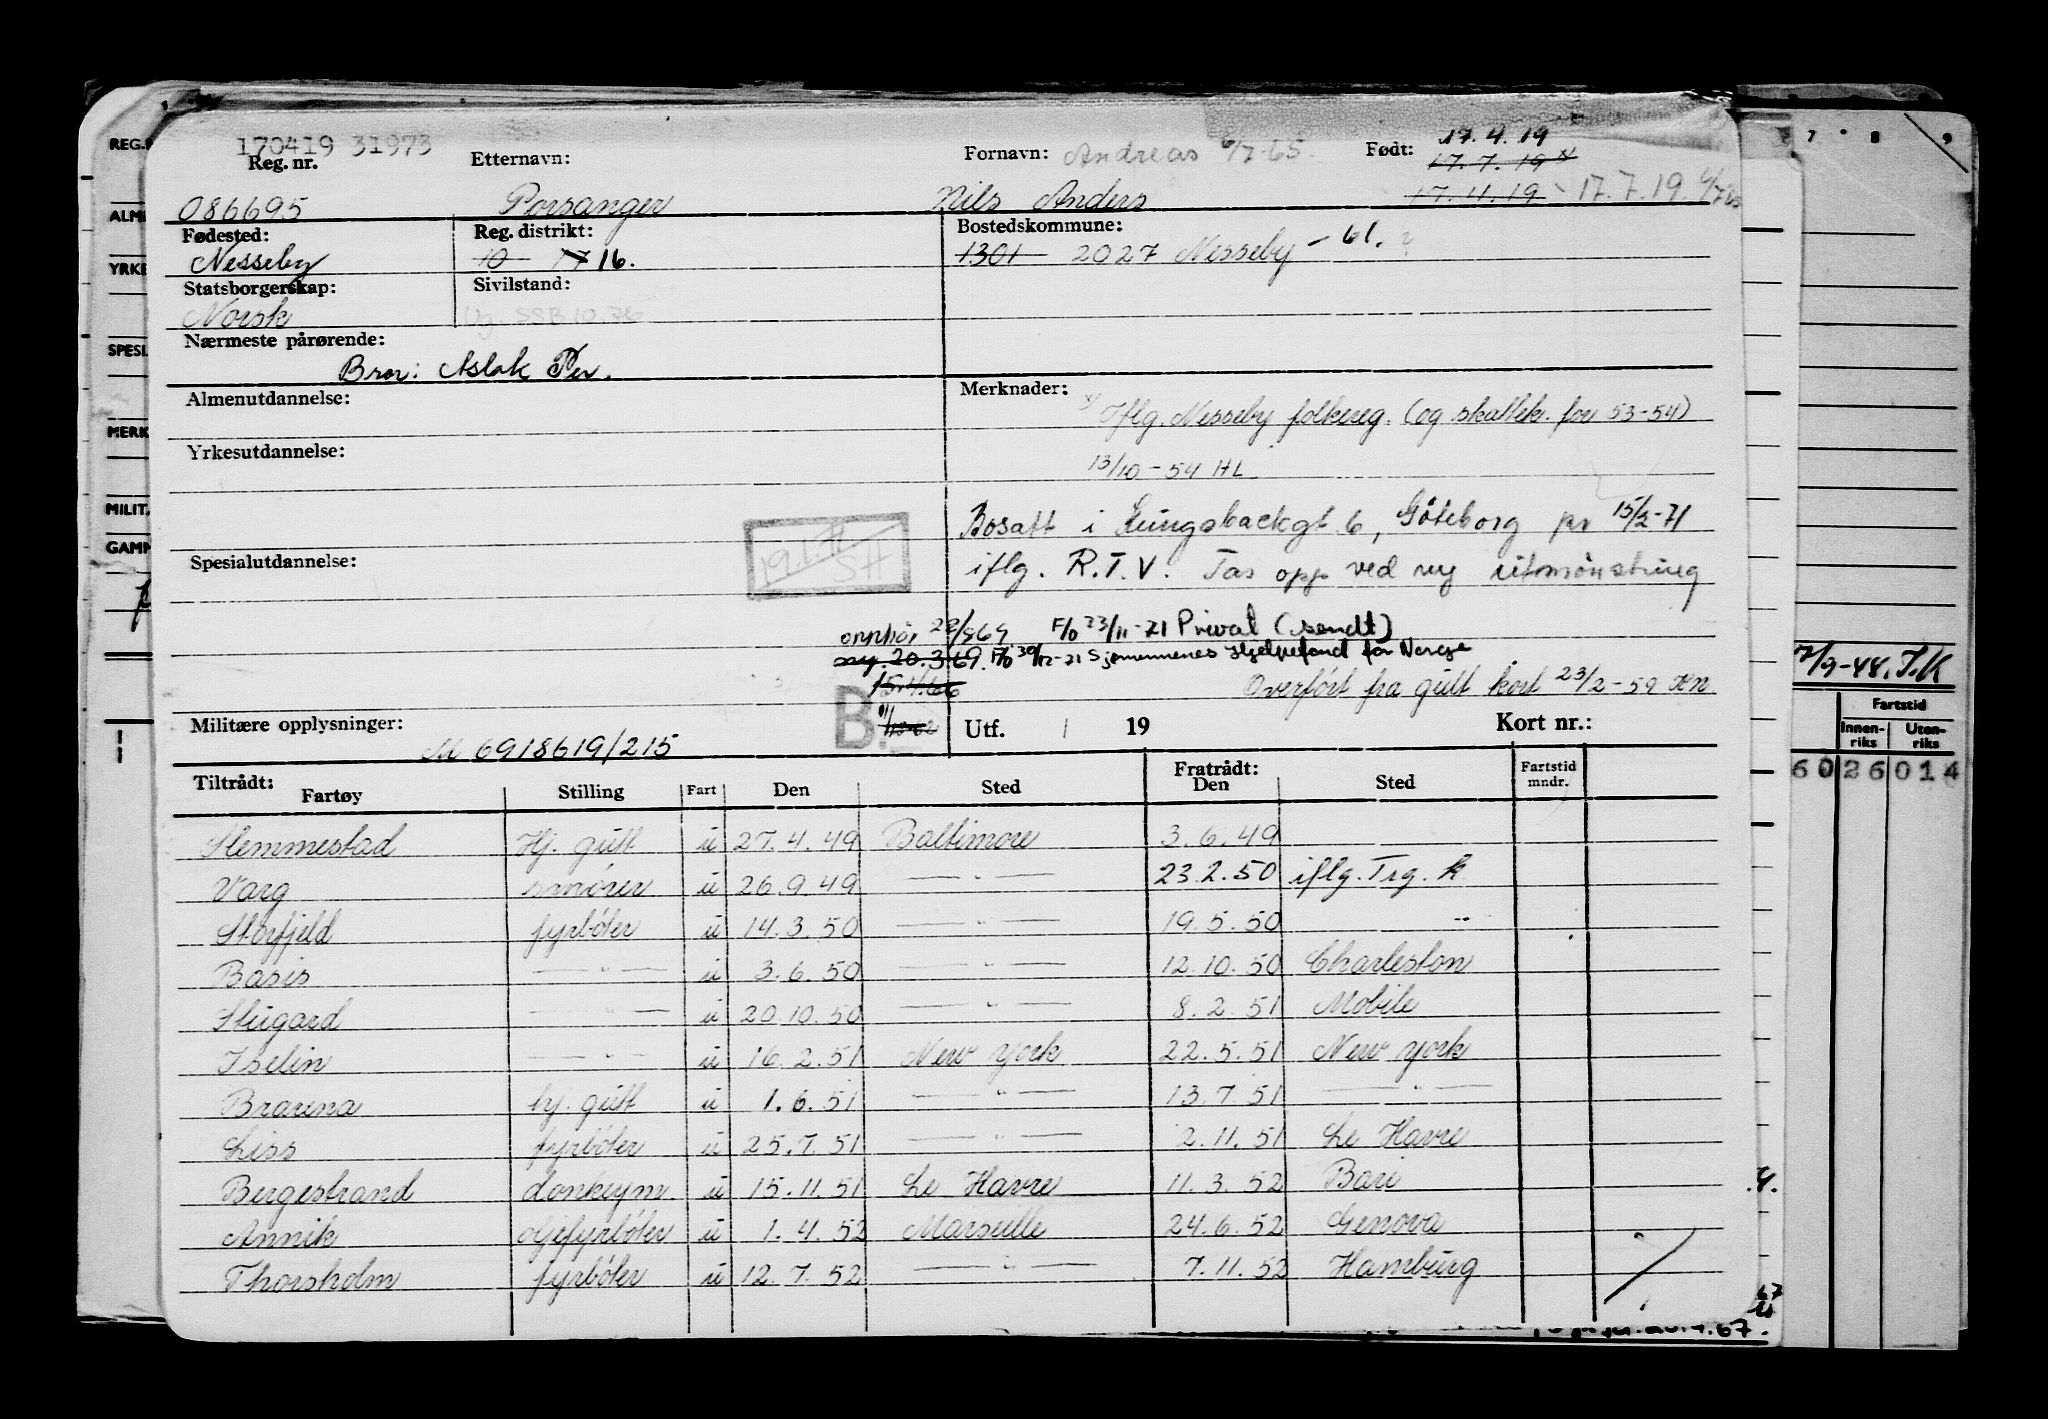 170419 31973
Reg. nr. Etternavn: Fornavn: Andreas 6/7-65. Født: 17.4.19
17.7.19 x
086695 Porsanger Nils Anders 17.11.19 - 17.7.19 6/7 65
Fødested: Reg. distrikt: Bostedskommune:
Nesseby 10 16. 1301 2027 Nesseby - 61. ?
Statsborgerskap: Sivilstand:
Norsk Ug. SSB 10.76
Nærmeste pårørende:
Bror: Aslak Per.
Almenutdannelse: Merknader:
x) Iflg. Nesseby folkereg. (og skattek. for 53-54)
Yrkesutdannelse: 13/10-54 HL
Bosatt i Kungsbackgt 6, Göteborg pr 15/2-71
Spesialutdannelse: 19.1.71 SH iflg. R.T.V. Tas opp ved ny utmønstring
opphør 22/569 F/o 23/11-71 Privat (sendt)
ny. 20.3.69. F/o 30/12-71 Sjømennenes Hjelpefond for Norge
15.4.66 Overført fra gult kort 23/2-59 KN
Militære opplysninger: B. Utf. / 19 Kort nr.:
M 6918619/215
Tiltrådt: Fratrådt:
Fartøy Stilling Fart Den Sted Den Sted Fartstid mndr.
Stemmestad Hj. gutt u 27.4.49 Baltimore 3.6.49
Varg smører u 26.9.49 — " — 23.2.50 iflg. Trg. k
Storfjeld fyrbøter u 14.3.50 — " — 19.5.50 "
Basis — " — u 3.6.50 — " — 12.10.50 Charleston
Stugard — " — u 20.10.50 — " — 8.2.51 Mobile
Iselin — " — u 16.2.51 New York 22.5.51 New York
Bravena hj. gutt u 1.6.51 — " — 13.7.51 — " —
Liss fyrbøter u 25.7.51 — " — 2.11.51 Le Havre
Bergestrand donkeym. u 15.11.51 Le Havre 11.3.52 Bari
Annik oljefyrbøter u 1.4.52 Marseille 24.6.52 Genova
Thorsholm fyrbøter u 12.7.52 — " — 7.11.52 Hamburg
REG.
ALM
YRKE
SPESI.
MERK
MILIT.
GAMM
7 8 9
12/9-48. J.K
Fartstid
Innen-riks Uten-riks
60 26 014
67